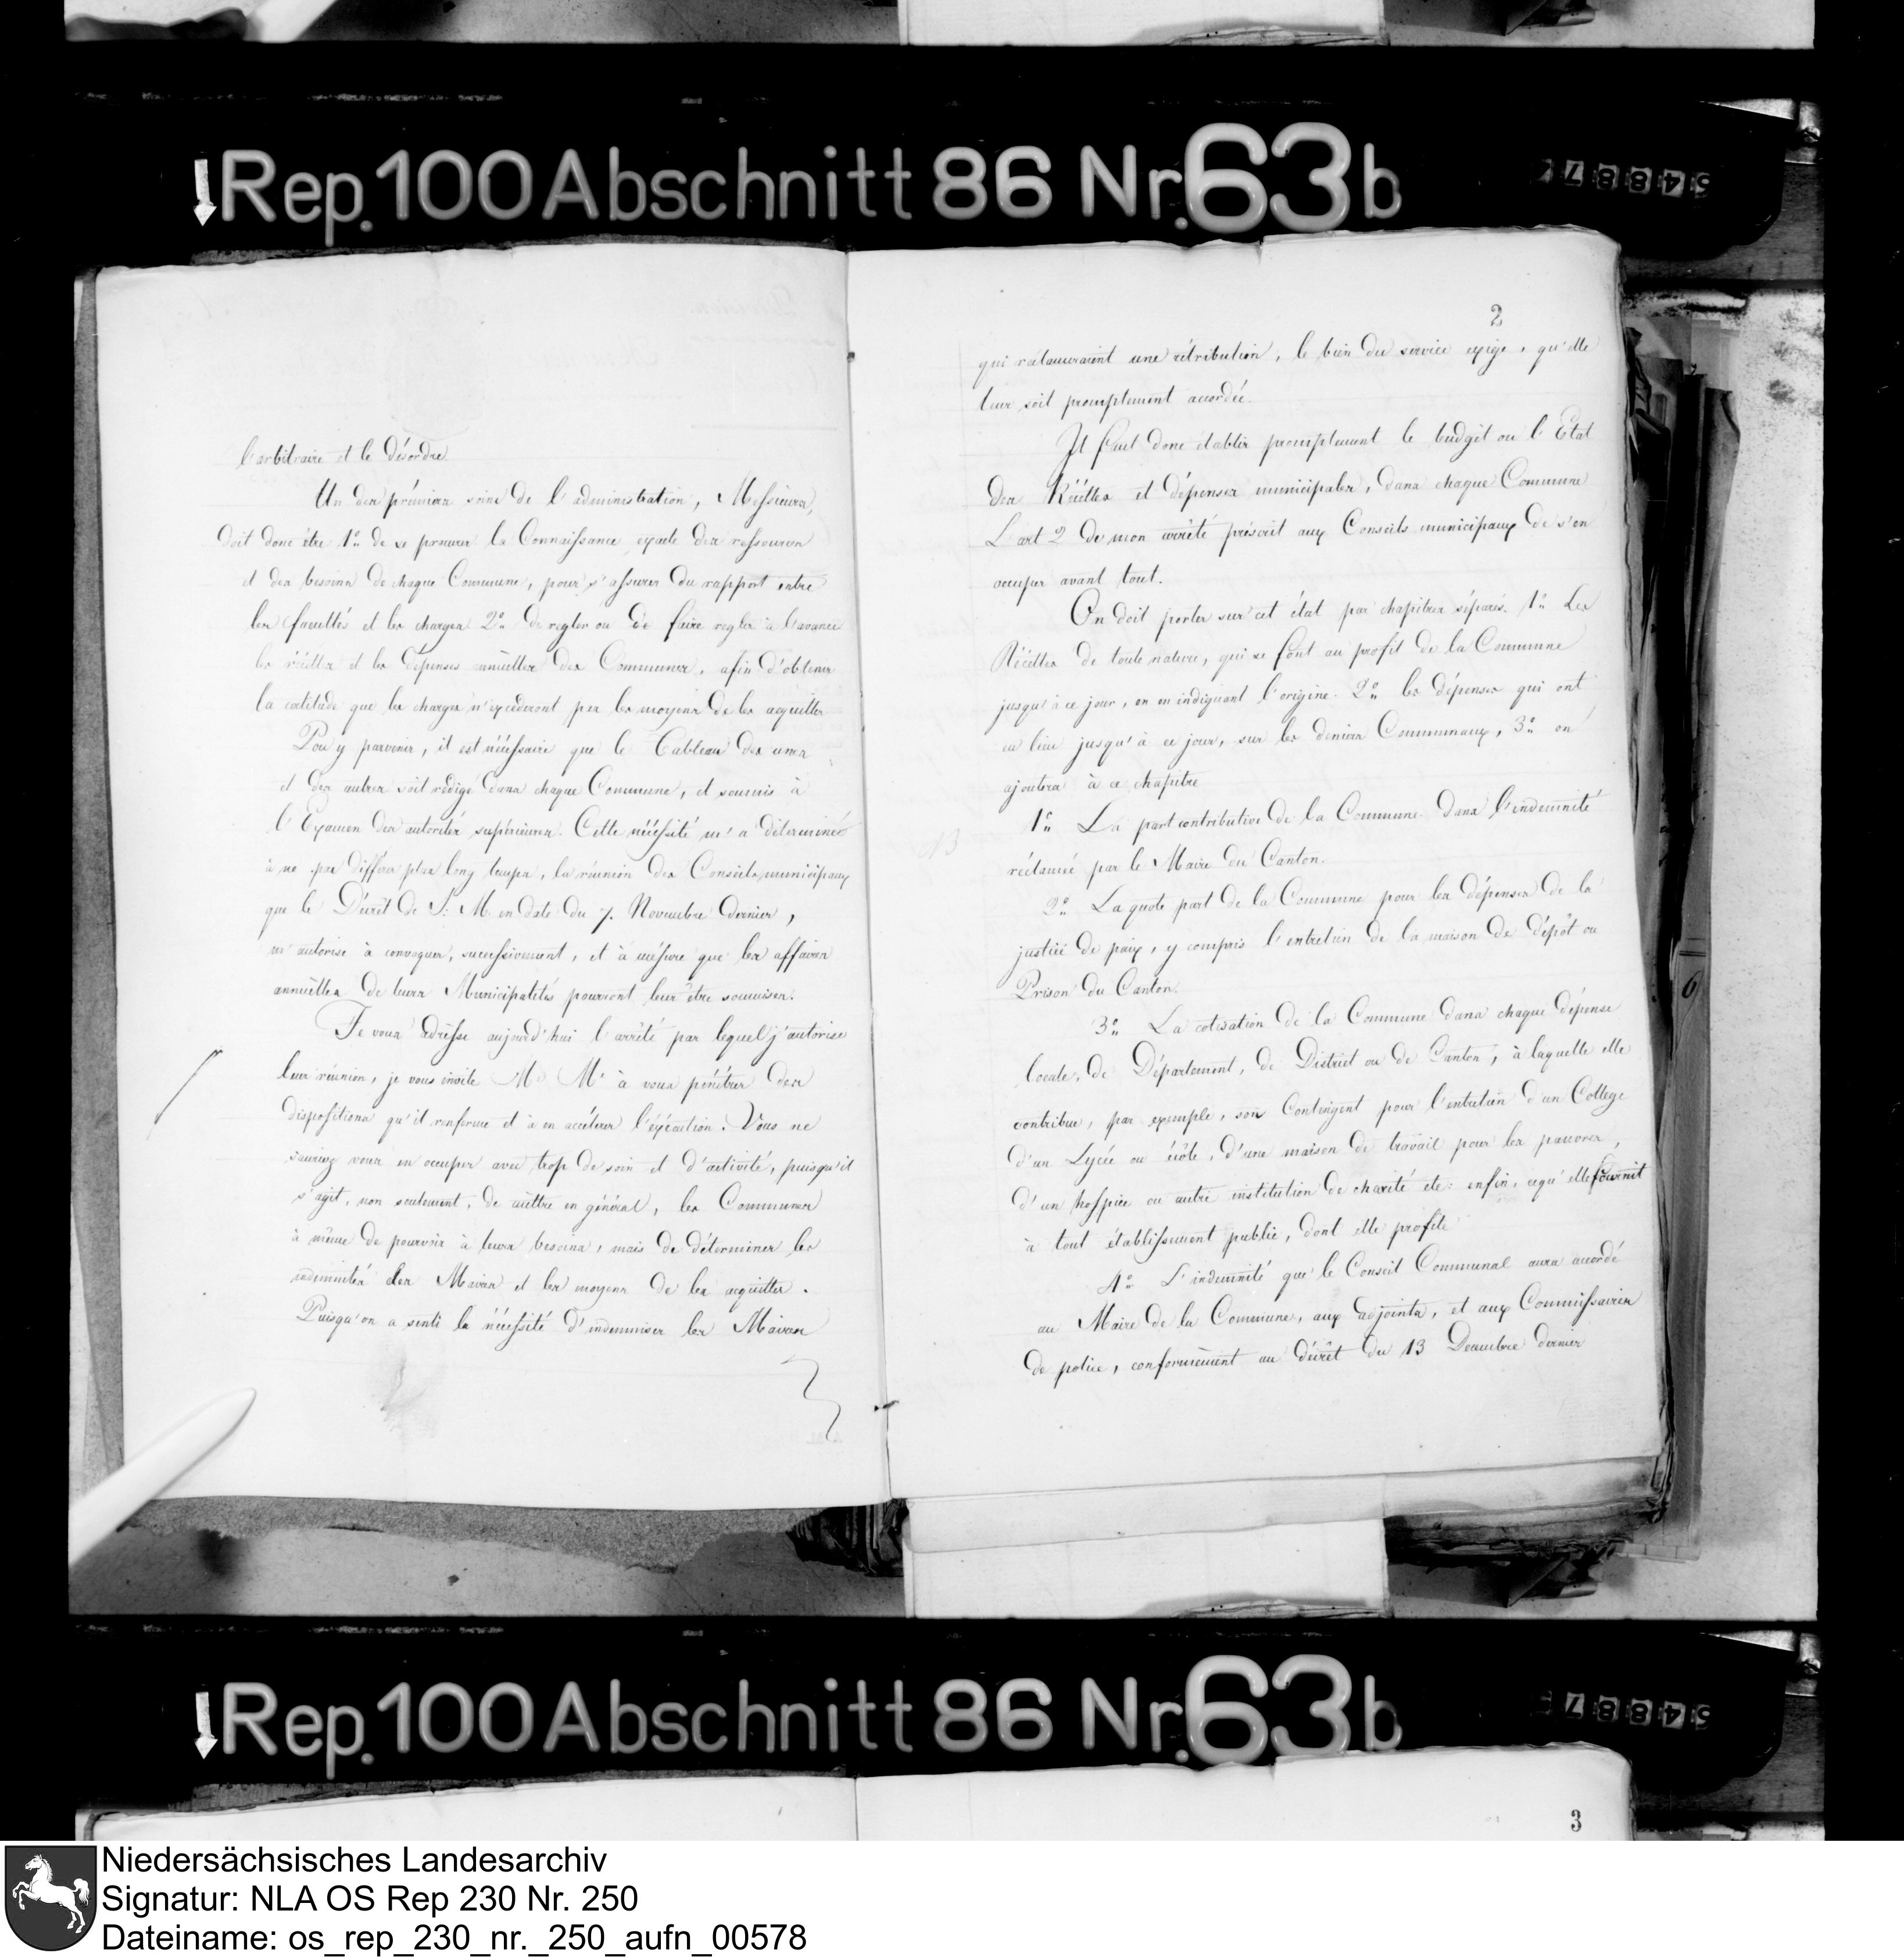 Rep. 100 Abschnitt 86 Nr. 63b
54887
l'arbitraire et le désordre
Un des prémiers soins de l'administration, Messieurs,
doit donc être 1o de se procurer la Connaissance exacte des ressources
et des besoins de chaque Commune, pour s'assurer du rapport entre
les facultés et les charges 2o de regler ou de faire regler à l'avance
les récettes et les dépenses annuelles des Communes, afin d'obtenir
la certitude que les charges n'excederont pas les moyens de les acquitter
Pour y parvenir, il est nécéssaire que le Tableau des unes
et des autres soit rédigé dans chaque Commune, et soumis à
l'Examen des autorités supérieures. Cette nécéssité m'a déterminé
à ne pas différer plus long temps, la réunion des Conseils municipaux
que le Décrêt de S: M. en date du 7. Novembre dernier,
m'autorise à convoquer, successivement, et à mésure que les affaires
annuelles de leurs Municipalités pourront leur être soumises.
Je vous adresse aujourd'hui l'arrêté par lequel j'autorise
leur réunion, je vous invite M. M. à vous pénétrer des
dispositions qu'il renferme et à en accélerer l'éxécution. Vous ne
sauriez vous en occuper avec trop de soin et d'activité, puisqu'il
s'agit, non seulement, de mettre en général, les Communes
à même de pourvoir à leurs besoins, mais de déterminer les
indemnités des Maires et les moyens de les acquitter.
Puisqu'on a senti la nécéssité d'indemniser les Maires
2
qui réclameraient une rétribution, le bien du service exige, qu'elle
leur soit promptement accordée.
Il faut donc établir promptement le budget ou l'Etat
des Récettes et dépenses municipales, dans chaque Commune
L'art 2 de mon arrêté préscrit aux Conseils municipaux de s'en
occuper avant tout.
On doit porter sur cet état par chapitres séparés. 1o Les
Récettes de toute nature, qui se font au profit de la Commune
jusqu'à ce jour, en en indiquant l'origine. 2o les dépenses qui ont
eu lieu jusqu'à ce jour, sur les deniers Communaux, 3o on
ajoutera à ce chapitre
1o La part contributive de la Commune dans l'indemnité
réclamée par le Maire du Canton.
2o La quote part de la Commune pour les dépenses de la
justice de paix, y compris l'entretien de la maison de dépôt ou
Prison du Canton.
3o La cotisation de la Commune dans chaque dépense
locale, de Département, de District ou de Canton, à laquelle elle
contribue, par exemple, son Contingent pour l'entretien d'un College
d'un Lycée ou école, d'une maison de travail pour les pauvres,
d'un hospice ou autre institution de charité etc: enfin, ce qu'elle fournit
à tout établissement public, dont elle profite
4o L'indemnité que le Conseil Communal aura accordé
au Maire de la Commune, aux adjoints, et aux Commissaires
de police, conformément au décrêt du 13 Decembre dernier
6
Rep. 100 Abschnitt 86 Nr. 63b
54887
3
Niedersächsisches Landesarchiv
Signatur: NLA OS Rep 230 Nr. 250
Dateiname: os_rep_230_nr._250_aufn_00578